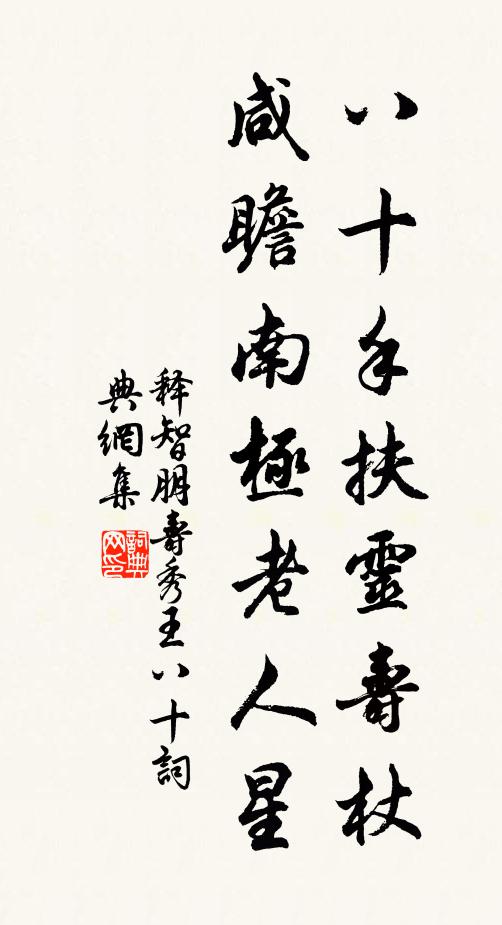 八十手扶靈壽杖
咸瞻南極老人星
释智朋壽秀王八十詞
典網集
詞典网印